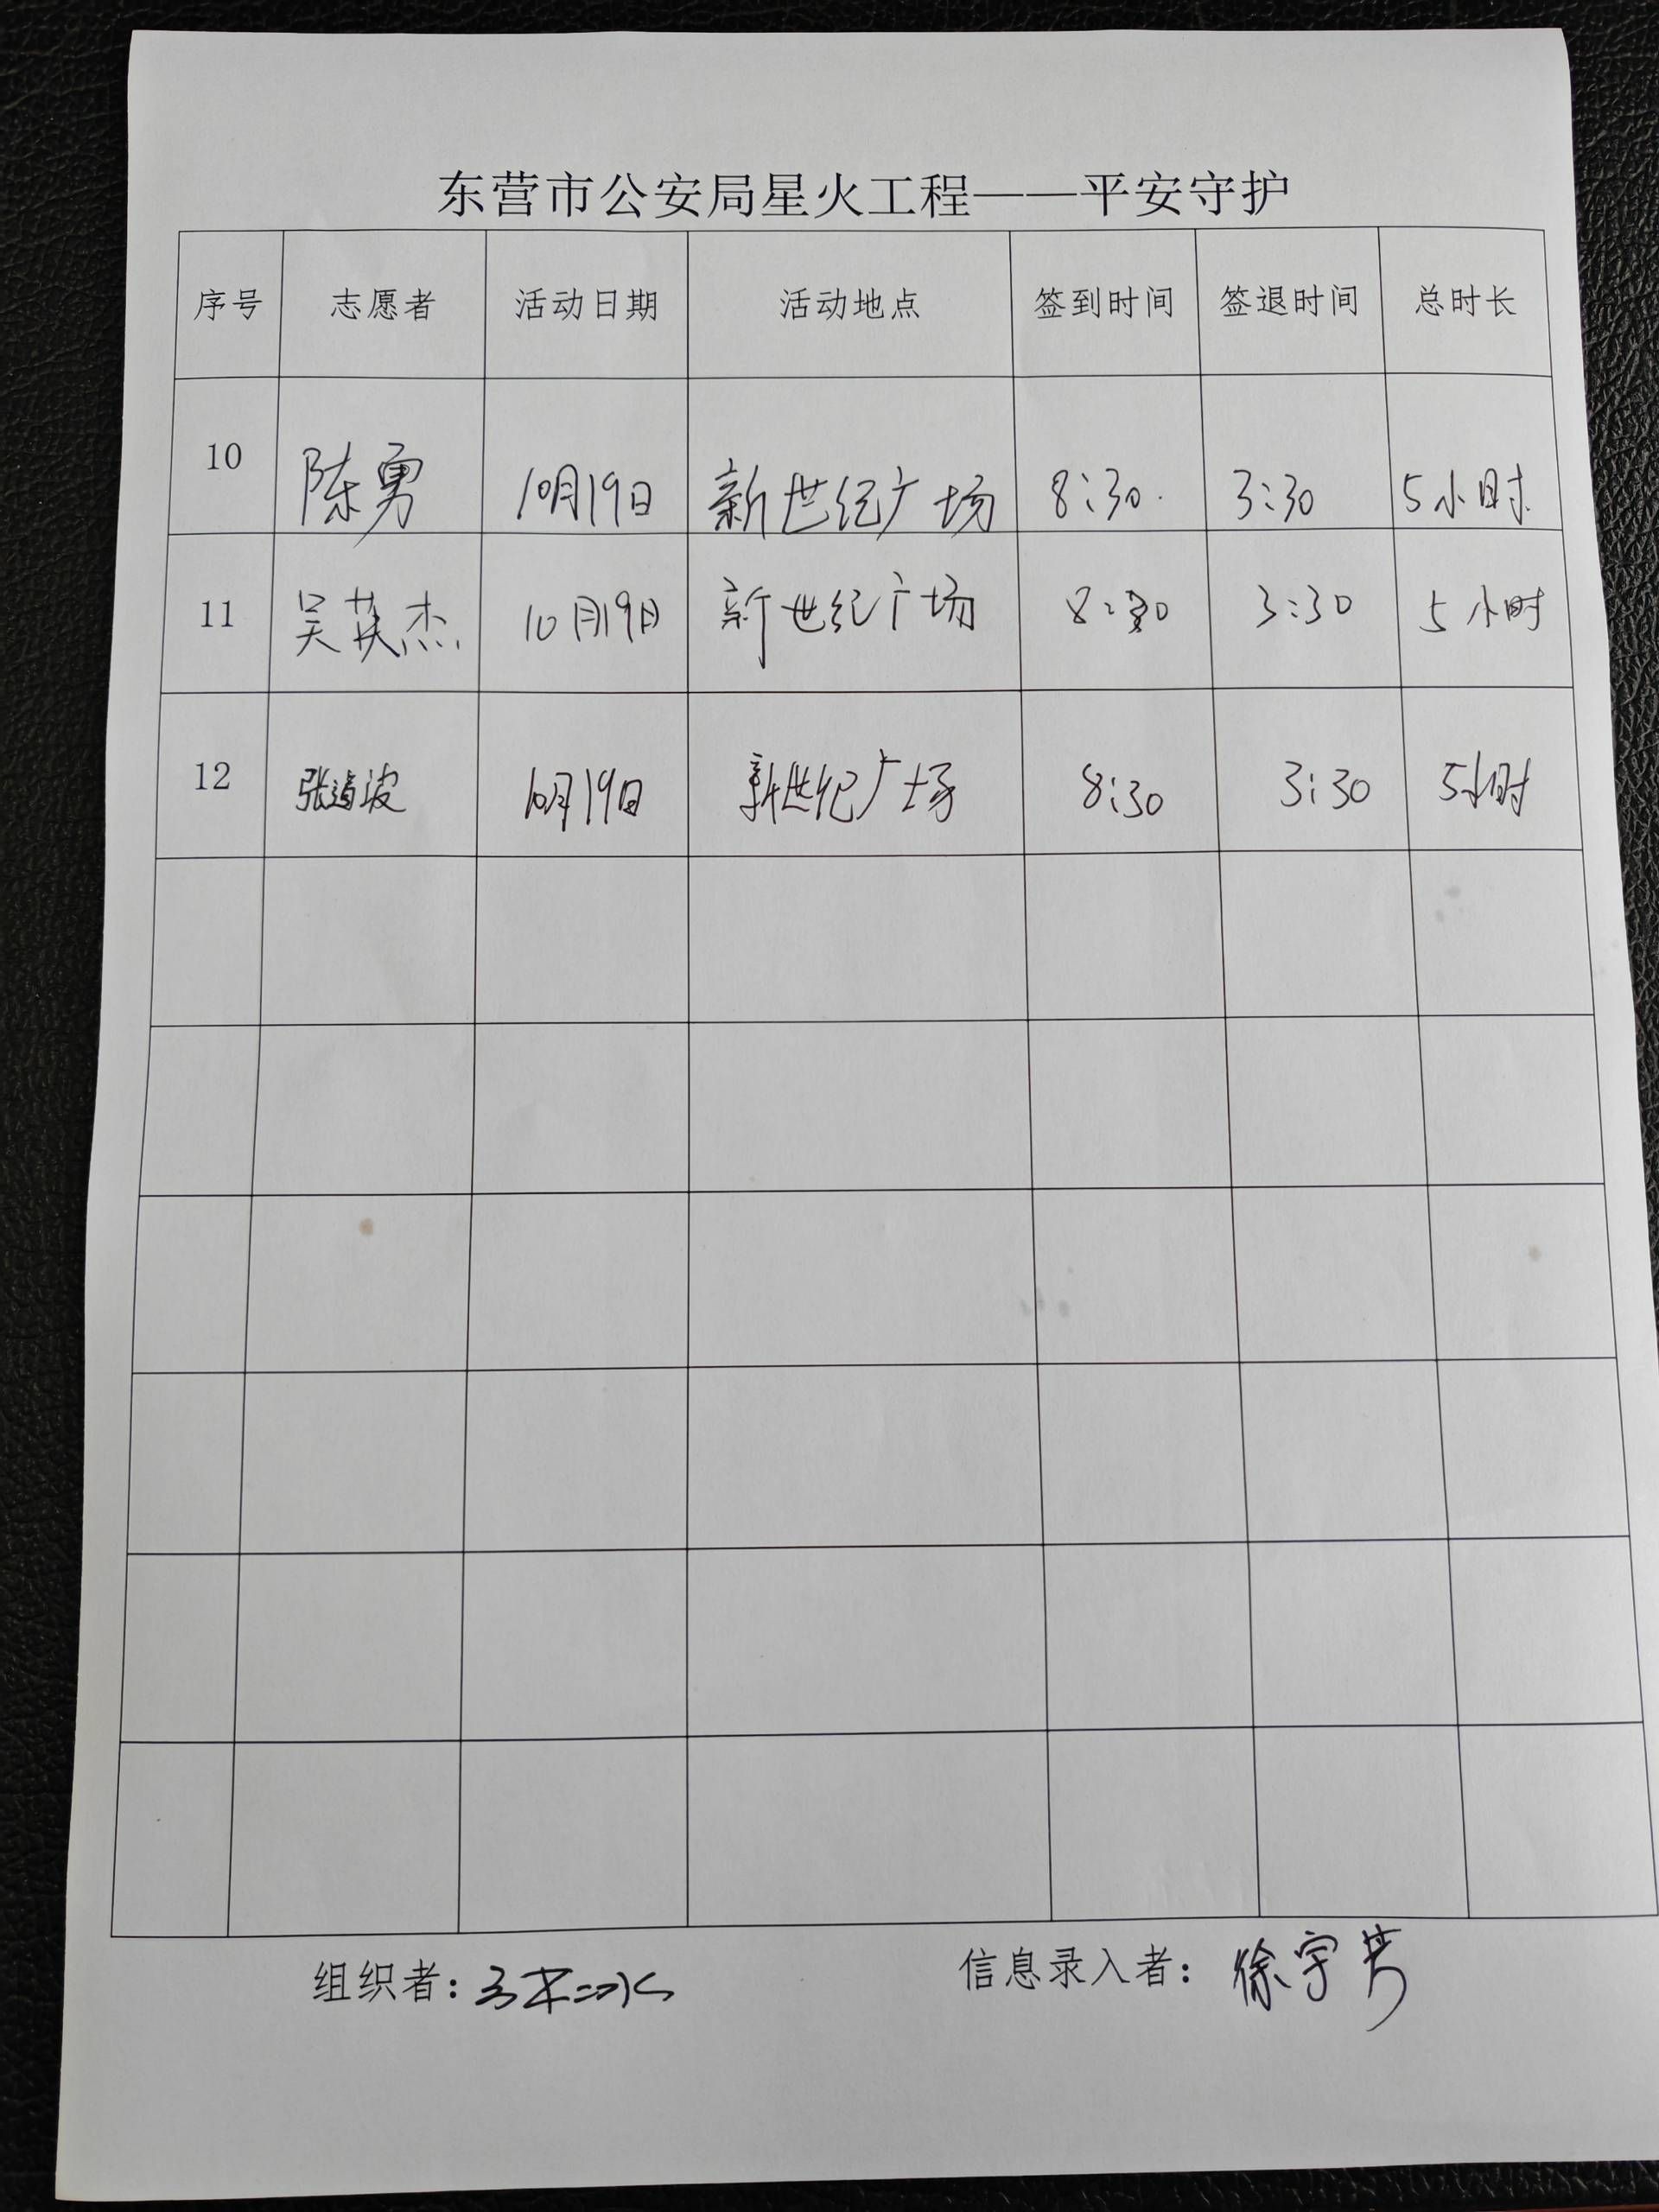 东营市公安局星火工程——平安守护
序号 志愿者 活动日期 活动地点 签到时间 签退时间 总时长
10 陈勇 10月19日 新世纪广场 8:30 3:30 5小时
11 吴英杰 10月19日 新世纪广场 8:30 3:30 5小时
12 张道波 10月19日 新世纪广场 8:30 3:30 5小时
组织者: 信息录入者: 徐宇芳